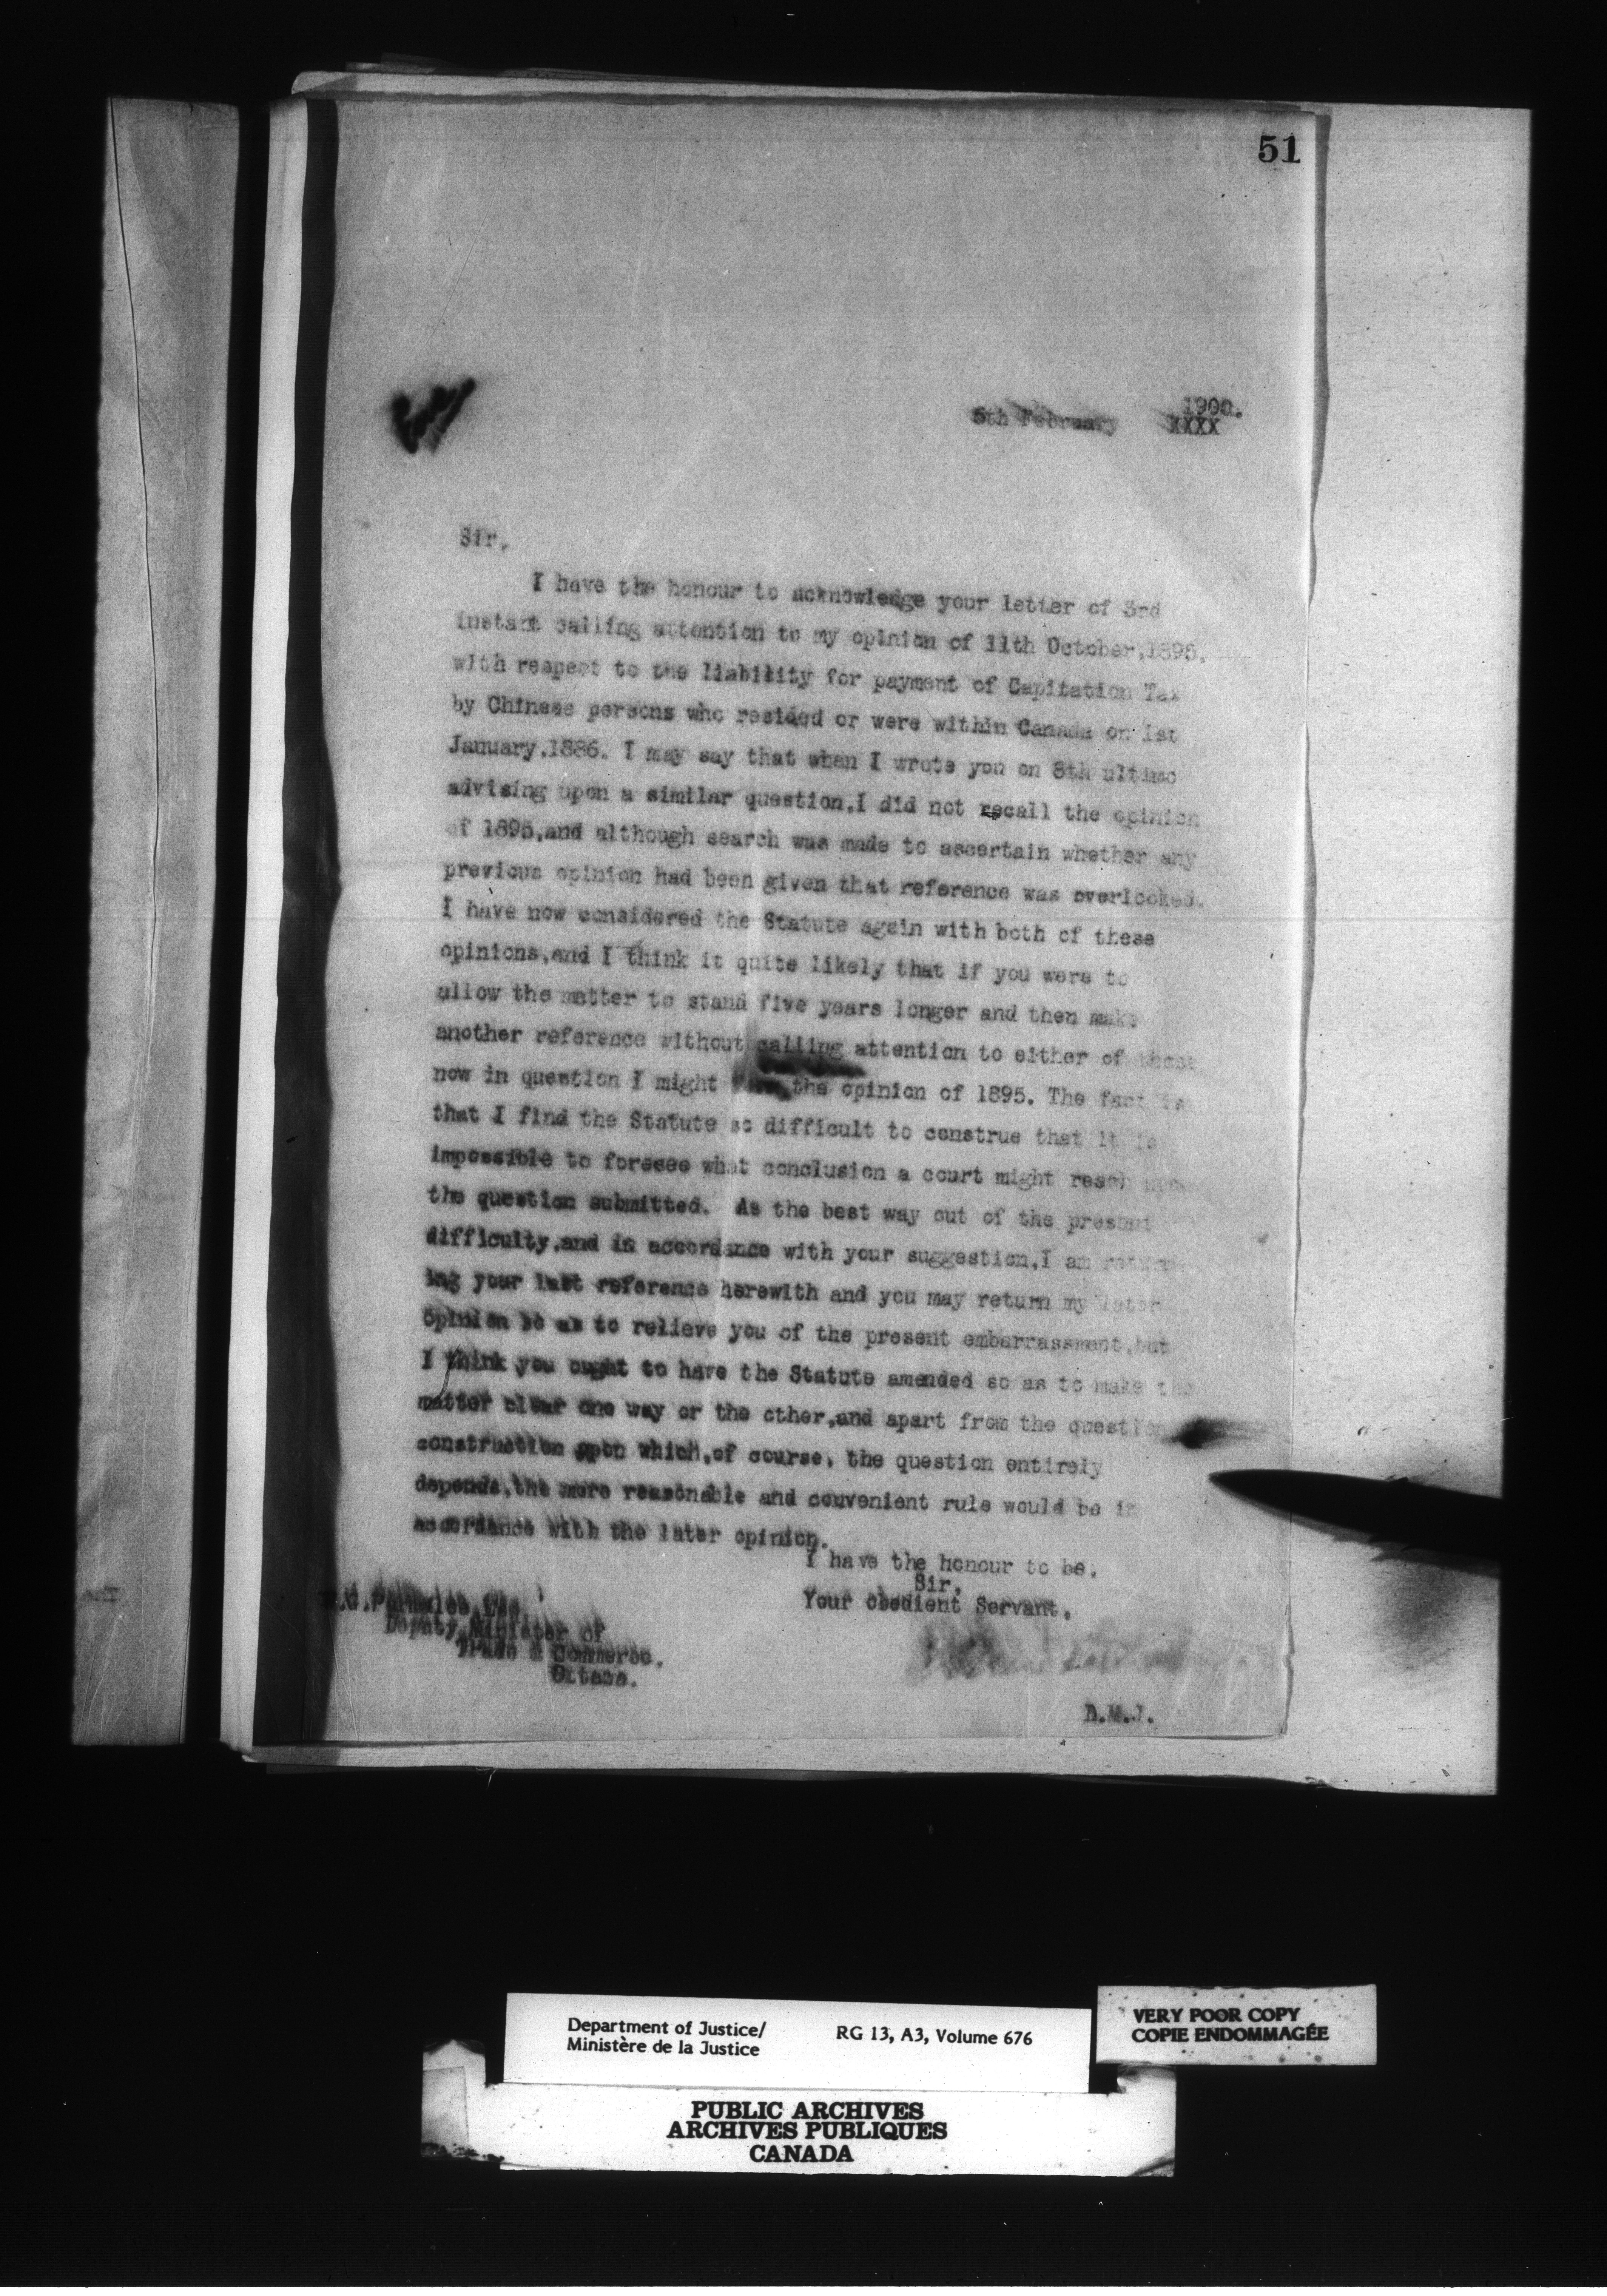 51
1900.
5th February XXXX
Sir,
I have the honour to acknowledge your letter of 3rd
instant calling attention to my opinion of 11th October,1895,
with respect to the liability for payment of Capitation Tax
by Chinese persons who resided or were within Canada on 1st
January,1886. I may say that when I wrote you on 8th ultimo
advising upon a similar question,I did not recall the opinion
of 1895,and although search was made to ascertain whether any
previous opinion had been given that reference was overlooked.
I have now considered the Statute again with both of these
opinions,and I think it quite likely that if you were to
allow the matter to stand five years longer and then make
another reference without calling attention to either of those
now in question I might the opinion of 1895. The fact is
that I find the Statute so difficult to construe that it is
impossible to foresee what conclusion a court might reach
the question submitted. As the best way out of the present
difficulty,and in accordance with your suggestion,I am
ing your last reference herewith and you may return my later
opinion so as to relieve you of the present embarrassment,but
I think you ought to have the Statute amended so as to make the
matter clear one way or the other,and apart from the question
construction upon which,of course, the question entirely
depends,the more reasonable and convenient rule would be in
accordance with the later opinion.
I have the honour to be,
Sir,
Your obedient Servant,
Deputy Minister of
Trade & Commerce,
Ottawa.
D.M.J.
Department of Justice/ RG 13, A3, Volume 676
Ministère de la Justice
VERY POOR COPY
COPIE ENDOMMAGÉE
PUBLIC ARCHIVES
ARCHIVES PUBLIQUES
CANADA